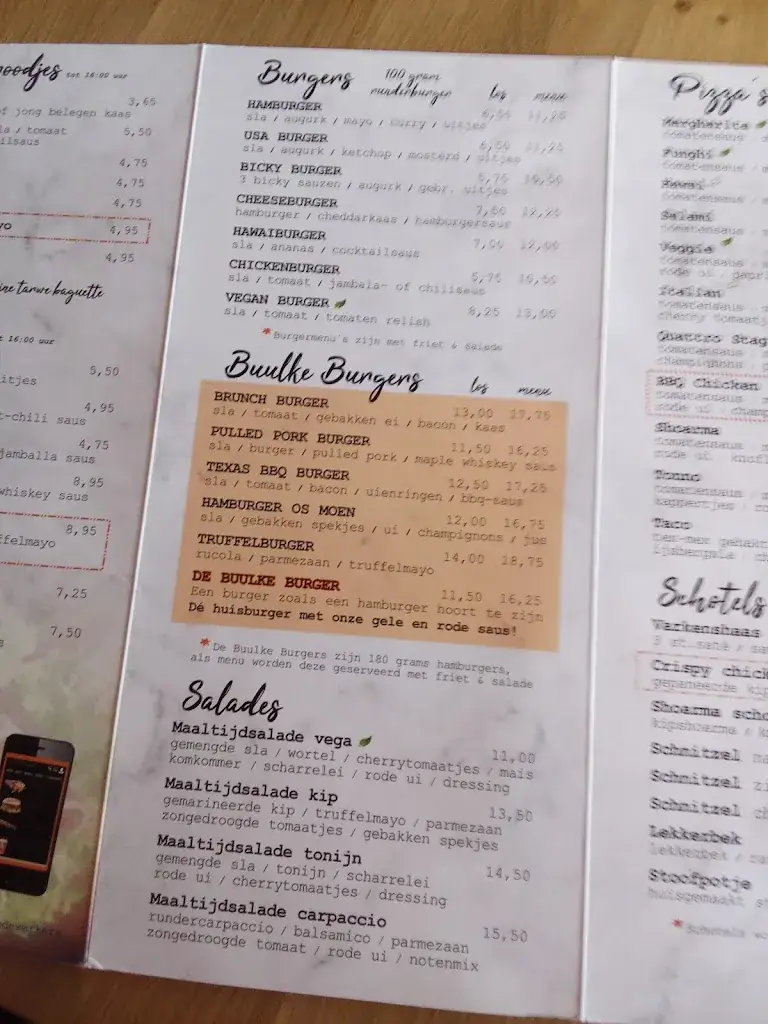 oodjes tot 16:00 uur
3,65
of jong belegen kaas
la / tomaat 5,50
ilsaus
4,75
4,75
4,75
yo 4,95
4,95
ine tarwe baguette
t 16:00 uur
5,50
itjes
4,95
t-chili saus
4,75
jamballa saus
8,95
whiskey saus
8,95
ffelmayo
7,25
7,50
Burgers 100 gram runderburger los menu
HAMBURGER
sla / augurk / mayo / curry / uitjes
USA BURGER
sla / augurk / ketchup / mosterd / uitjes
BICKY BURGER
3 bicky sauzen / augurk / gebr. uitjes
CHEESEBURGER
hamburger / cheddarkaas / hamburgersaus
HAWAIBURGER
sla / ananas / cocktailsaus
CHICKENBURGER
sla / tomaat / jambala- of chilisaus
VEGAN BURGER 8,25
sla / tomaat / tomaten relish
*Burgermenu's zijn met friet & salade
Buulke Burgers los menu
BRUNCH BURGER 13,00 17,75
sla / tomaat / gebakken ei / bacon / kaas
PULLED PORK BURGER 11,50 16,25
sla / burger / pulled pork / maple whiskey saus
TEXAS BBQ BURGER 12,50 17,25
sla / tomaat / bacon / uienringen / bbq-saus
HAMBURGER OS MOEN 12,00 16,75
sla / gebakken spekjes / ui / champignons / jus
TRUFFELBURGER 14,00 18,75
rucola / parmezaan / truffelmayo
DE BUULKE BURGER 11,50 16,25
Een burger zoals een hamburger hoort te zijn
Dé huisburger met onze gele en rode saus!
*De Buulke Burgers zijn 180 grams hamburgers,
als menu worden deze geserveerd met friet & salade
Salades
Maaltijdsalade vega 11,00
gemengde sla / wortel / cherrytomaatjes / mais
komkommer / scharrelei / rode ui / dressing
Maaltijdsalade kip 13,50
gemarineerde kip / truffelmayo / parmezaan
zongedroogde tomaatjes / gebakken spekjes
Maaltijdsalade tonijn 14,50
gemengde sla / tonijn / scharrelei
rode ui / cherrytomaatjes / dressing
Maaltijdsalade carpaccio 15,50
rundercarpaccio / balsamico / parmezaan
zongedroogde tomaat / rode ui / notenmix
Pizza's
Margharita
tomatensaus
Funghi
tomatensaus
Hawai
tomatensaus
Salami
tomatensaus
Veggie
tomatensaus
rode ui / papri
Italian
tomatensaus
cherry tomaatj
Quattro Stag
tomatensaus
champignons
BBQ Chicken
tomatensaus
rode ui / champ
Shoarma
tomatensaus
rode ui / knofl
Tonno
tomatensaus
kappertjes / ro
Taco
tex-mex gehakt
ijsbergsla / ch
Schotels
Varkenshaas
3 st. saté / sa
Crispy chick
gepaneerde kip
Shoarma scho
kipshoarma / k
Schnitzel na
Schnitzel zi
Schnitzel ch
Lekkerbek
lekkerbek / ra
Stoofpotje
huisgemaakt st